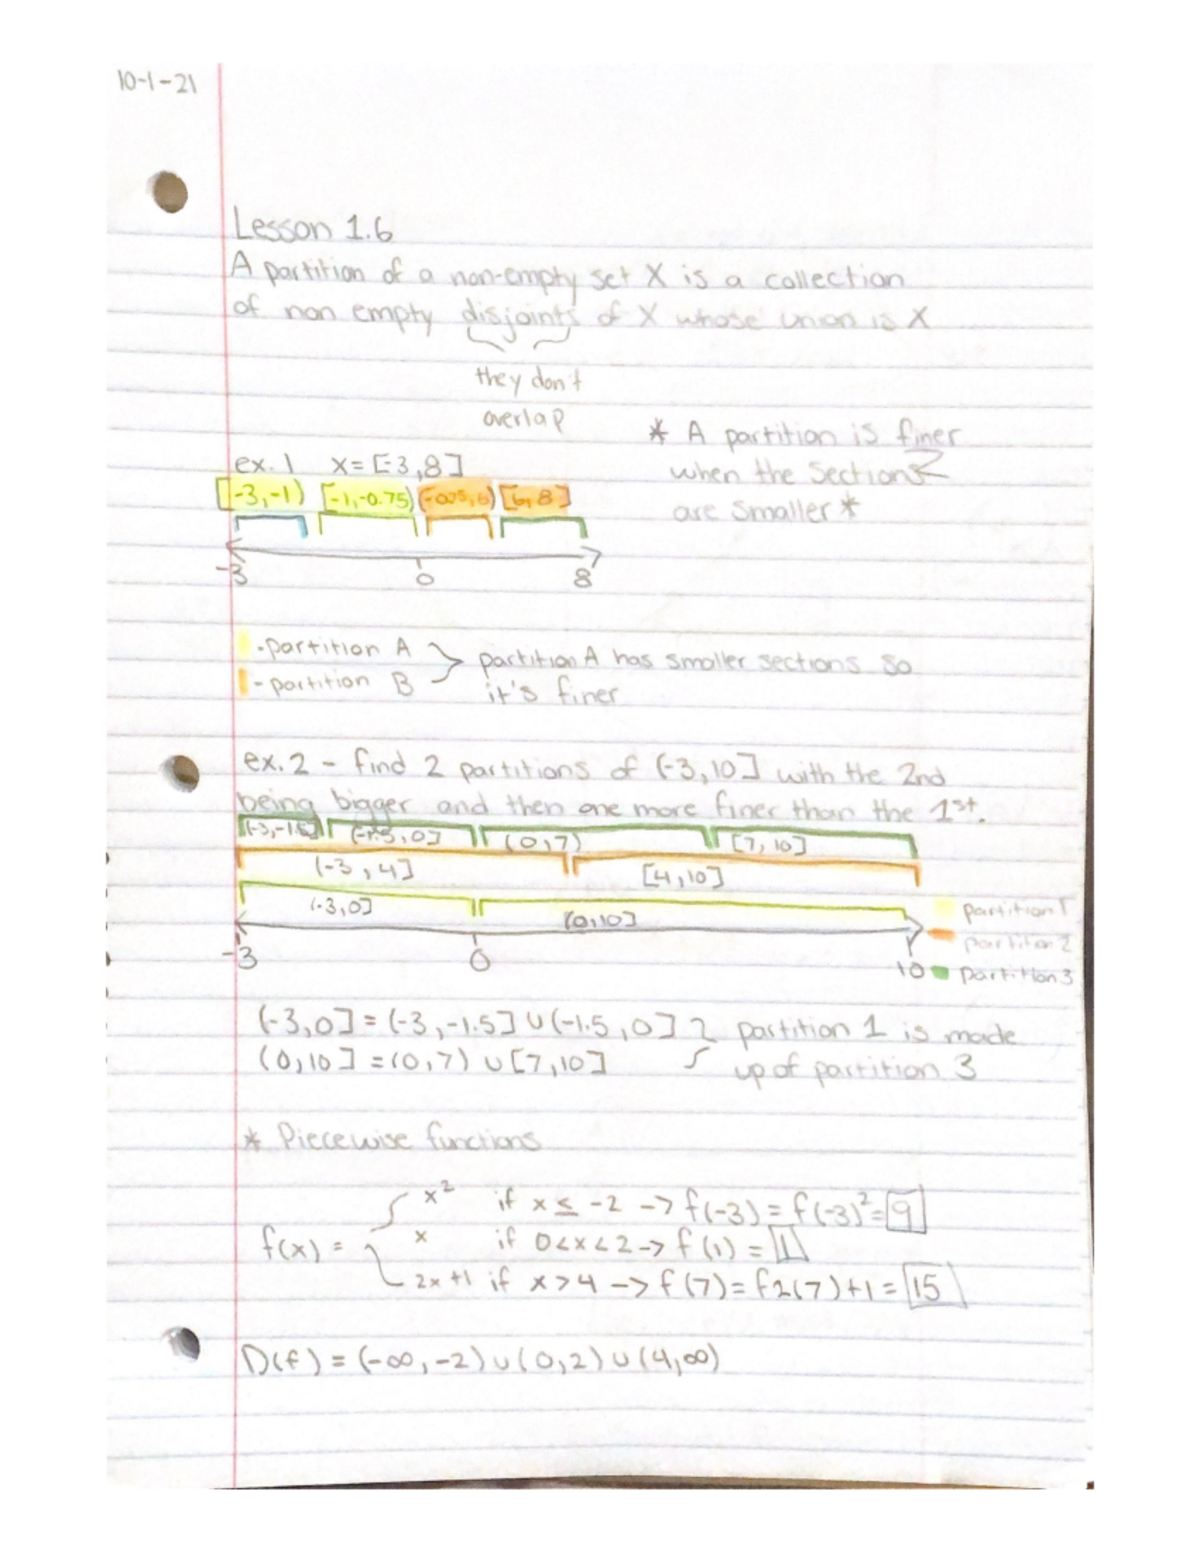 10-1-21
Lesson 1.6
A partition of a non-empty set X is a collection
of non empty disjoints of X whose union is X
they don't
overlap
* A partition is finer
when the sections
are smaller *
ex. 1 X = [-3,8]
[-3,-1) [-1,-0.75) (-0.75,6) [6,8]
-3 0 8
-partition A
- partition B
partition A has smaller sections so
it's finer
ex. 2 - find 2 partitions of (-3,10] with the 2nd
being bigger and then one more finer than the 1st.
(-3,-1.5] (-1.5,0] (0,7) [7,10]
(-3,4] [4,10]
(-3,0] (0,10]
partition 1
partition 2
partition 3
-3 0 10
(-3,0] = (-3,-1.5] ∪ (-1.5,0]
(0,10] = (0,7) ∪ [7,10]
partition 1 is made
up of partition 3
* Piecewise functions
f(x) =
x² if x ≤ -2 -> f(-3) = f(-3)² = 9
x if 0<x<2 -> f(1) = 1
2x+1 if x>4 -> f(7) = f2(7)+1 = 15
D(f) = (-∞,-2) ∪ (0,2) ∪ (4,∞)